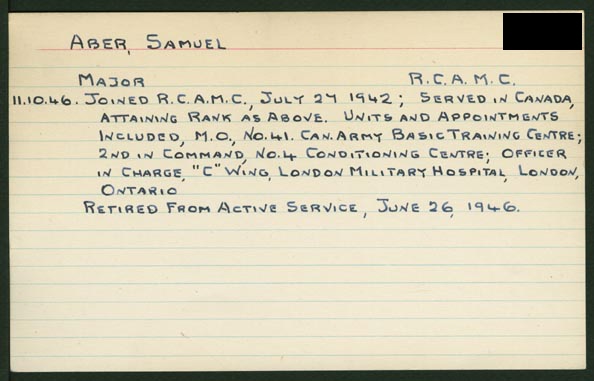 ABER, SAMUEL
MAJOR R.C.A.M.C.
11.10.46. JOINED R.C.A.M.C., JULY 27 1942; SERVED IN CANADA,
ATTAINING RANK AS ABOVE. UNITS AND APPOINTMENTS
INCLUDED, M.O., NO.41. CAN. ARMY BASIC TRAINING CENTRE;
2ND IN COMMAND, NO.4 CONDITIONING CENTRE; OFFICER
IN CHARGE, "C" WING, LONDON MILITARY HOSPITAL, LONDON,
ONTARIO
RETIRED FROM ACTIVE SERVICE, JUNE 26, 1946.